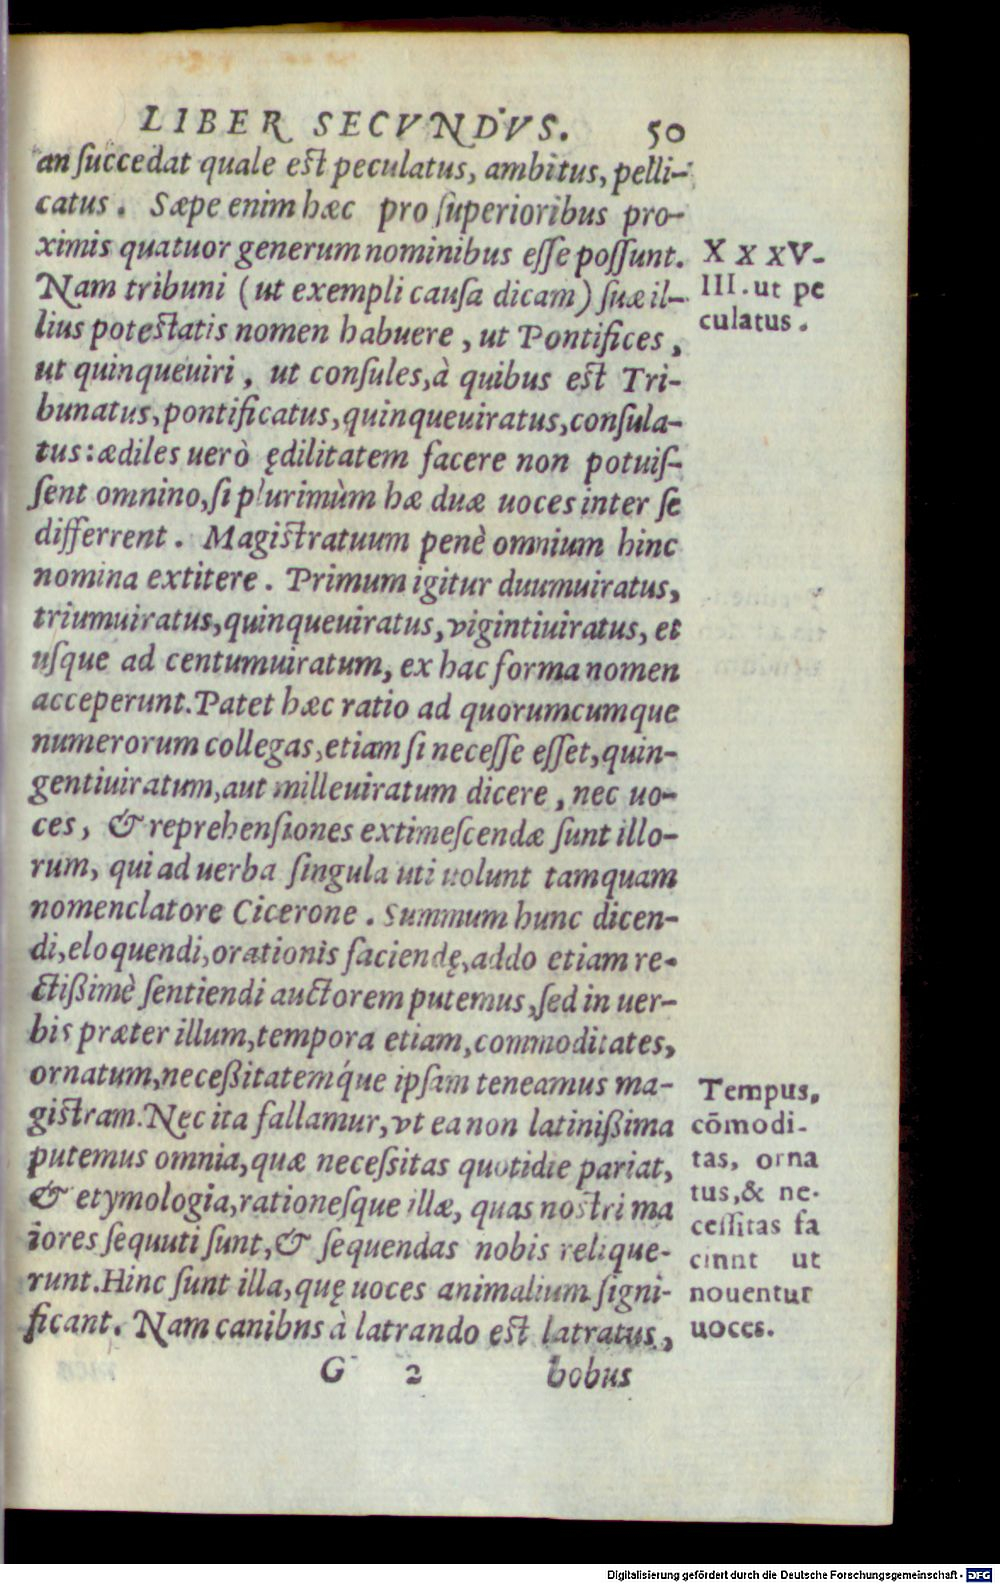 LIBER SECVNDVS. 50
an succedat quale est peculatus, ambitus, pelli-
catus. Sæpe enim hæc pro superioribus pro-
ximis quatuor generum nominibus esse possunt.
Nam tribuni (ut exempli causa dicam) suæ il-
lius potestatis nomen habuere, ut Pontifices,
ut quinqueuiri, ut consules, à quibus est Tri-
bunatus, pontificatus, quinqueuiratus, consula-
tus: ædiles uerò ędilitatem facere non potuis-
sent omnino, si plurimùm hæ duæ uoces inter se
differrent. Magistratuum penè omnium hinc
nomina extitere. Primum igitur duumuiratus,
triumuiratus, quinqueuiratus, vigintiuiratus, et
usque ad centumuiratum, ex hac forma nomen
acceperunt. Patet hæc ratio ad quorumcumque
numerorum collegas, etiam si necesse esset, quin-
gentiuiratum, aut milleuiratum dicere, nec uo-
ces, & reprehensiones extimescendæ sunt illo-
rum, qui ad uerba singula uti uolunt tamquam
nomenclatore Cicerone. Summum hunc dicen-
di, eloquendi, orationis faciendę, addo etiam re-
ctißimè sentiendi auctorem putemus, sed in uer-
bis præter illum, tempora etiam, commoditates,
ornatum, neceßitatemq́ue ipsam teneamus ma-
gistram. Nec ita fallamur, vt ea non latinißima
putemus omnia, quæ necessitas quotidie pariat,
& etymologia, rationesque illæ, quas nostri ma
iores sequuti sunt, & sequendas nobis relique-
runt. Hinc sunt illa, quę uoces animalium signi-
ficant. Nam canibns à latrando est latratus,
G 2 bobus
X X XV-
III. ut pe
culatus.
Tempus,
cōmodi-
tas, orna
tus, & ne-
cessitas fa
cinnt ut
nouentur
uoces.
Digitalisierung gefördert durch die Deutsche Forschungsgemeinschaft - DFG